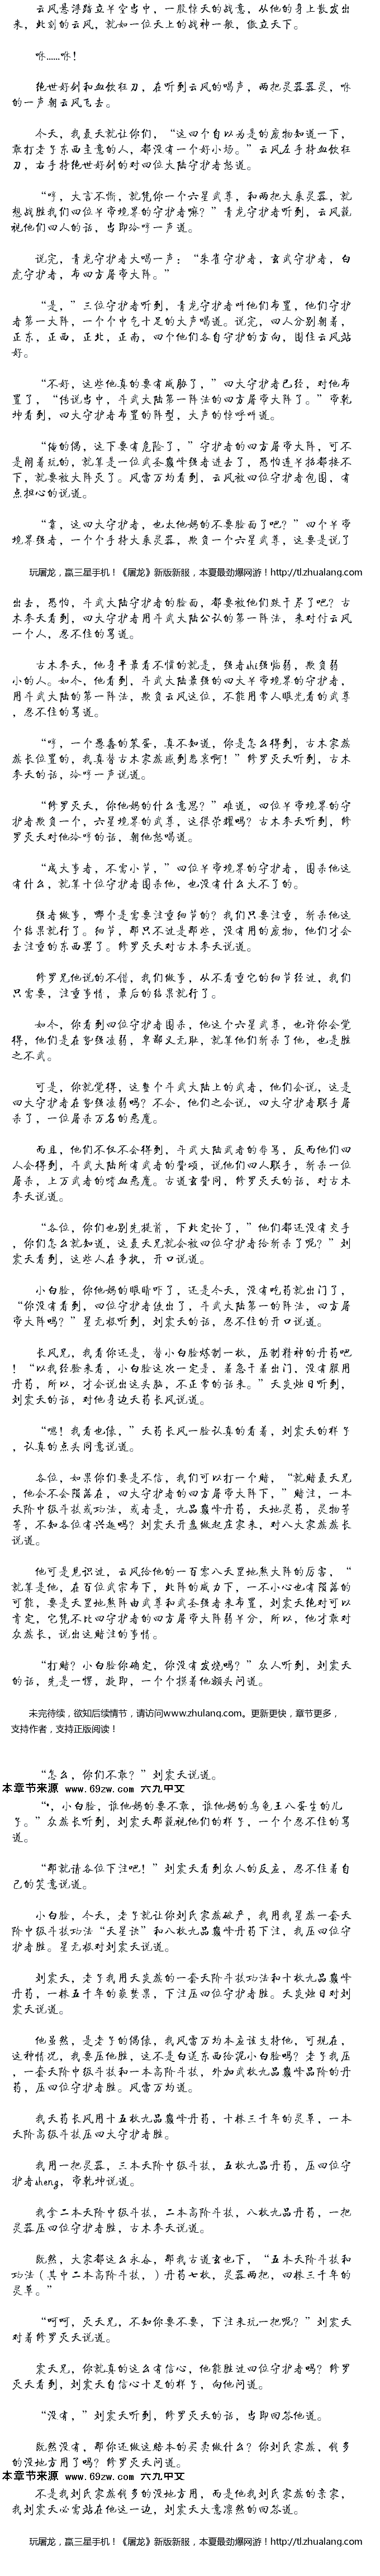 云风悬浮踏立半空当中，一股惊天的战意，从他的身上散发出
来，此刻的云风，就如一位天上的战神一般，傲立天下。
咻……咻！
绝世好剑和血饮狂刀，在听到云风的喝声，两把灵器器灵，咻
的一声朝云风飞去。
今天，我聂天就让你们，“这四个自以为是的废物知道一下，
敢打老子东西主意的人，都没有一个好小场。”云风左手持血饮狂
刀，右手持绝世好剑的对四位大陆守护者怒道。
“哼，大言不惭，就凭你一个六星武尊，和两把大乘灵器，就
想战胜我们四位半帝境界的守护者嘛？”青龙守护者听到，云风藐
视他们四人的话，当即冷哼一声道。
说完，青龙守护者大喝一声：“朱雀守护者，玄武守护者，白
虎守护者，布四方屠帝大阵。”
“是，”三位守护者听到，青龙守护者叫他们布置，他们守护
者第一大阵，一个个中气十足的大声喝道。说完，四人分别朝着，
正东，正西，正北，正南，四个他们各自守护的方向，围住云风站
好。
“不好，这些他真的要有威胁了，”四大守护者已经，对他布
置了，“传说当中，斗武大陆第一阵法的四方屠帝大阵了。”帝乾
坤看到，四大守护者布置的阵型，大声的惊呼叫道。
“俺的偶，这下要有危险了，”守护者的四方屠帝大阵，可不
是闹着玩的，就算是一位武圣巅峰强者进去了，恐怕连半招都接不
下，就要被大阵灭了。风雷万均看到，云风被四位守护者包围，有
点担心的说道。
“靠，这四大守护者，也太他妈的不要脸面了吧？”四个半帝
境界强者，一个个手持大乘灵器，欺负一个六星武尊，这要是说了
玩屠龙，赢三星手机！《屠龙》新版新服，本夏最劲爆网游！http://tl.zhualang.com
出去，恐怕，斗武大陆守护者的脸面，都要被他们败干尽了吧？古
木李天看到，四大守护者用斗武大陆公认的第一阵法，来对付云风
一个人，忍不住的骂道。
古木李天，他身平最看不惯的就是，强者shi强临弱，欺负弱
小的人。如今，他看到，斗武大陆最强的四大半帝境界的守护者，
用斗武大陆的第一阵法，欺负云风这位，不能用常人眼光看的武尊
，忍不住的骂道。
“哼，一个愚蠢的笨蛋，真不知道，你是怎么得到，古木家族
族长位置的，我真替古木家族感到悲哀啊！”修罗灭天听到，古木
李天的话，冷哼一声说道。
“修罗灭天，你他妈的什么意思？”难道，四位半帝境界的守
护者欺负一个，六星境界的武尊，这很荣耀吗？古木李天听到，修
罗灭天对他冷哼的话，朝他怒喝道。
“成大事者，不需小节，”四位半帝境界的守护者，围杀他这
有什么，就算十位守护者围杀他，也没有什么大不了的。
强者做事，哪个是需要注重细节的？我们只要注重，所杀他这
个结果就行了。细节，那只不过是那些，没有用的废物，他们才会
去注重的东西罢了。修罗灭天对古木李天说道。
修罗兄他说的不错，我们做事，从不看重它的细节经过，我们
只需要，注重事情，最后的结果就行了。
如今，你看到四位守护者围杀，他这个六星武尊，也许你会觉
得，他们是在努强凌弱，卑鄙又无耻，就算他们所杀了他，也是胜
之不武。
可是，你就觉得，这整个斗武大陆上的武者，他们会说，这是
四大守护者在努强凌弱吗？不会，他们之会说，四大守护者联手屠
杀了，一位屠杀万名的恶魔。
而且，他们不仅不会得到，斗武大陆武者的辱骂，反而他们四
人会得到，斗武大陆所有武者的赞颂，说他们四人联手，所杀一位
屠杀，上万武者的嗜血恶魔。古道玄赞同，修罗灭天的话，对古木
李天说道。
“各位，你们也别先提前，下此定论了，”他们都还没有交手
，你们怎么就知道，这聂天兄就会被四位守护者给所杀了呢？”刘
震天看到，这些人在争执，开口说道。
小白脸，你他妈的眼睛吓了，还是今天，没有吃药就出门了，
“你没有看到，四位守护者使出了，斗武大陆第一的阵法，四方屠
帝大阵吗？”星无极听到，刘震天的话，忍不住的开口说道。
长风兄，我看你还是，替小白脸炼制一枚，压制精神的丹药吧
！“以我经验来看，小白脸这次一定是，着急干着出门，没有服用
丹药，所以，才会说出这头脑，不正常的话来。”天炎烛日听到，
刘震天的话，对他身边天药长风说道。
“嗯！我看也像，”天药长风一脸认真的看着，刘震天的样子
，认真的点头同意说道。
各位，如果你们要是不信，我们可以打一个赌，“就赌聂天兄
，他会不会陨落在，四大守护者的四方屠帝大阵下，”赌注，一本
天阶中级斗技或功法，或者是，九品巅峰丹药，天地灵药，灵物等
等，不知各位有兴趣吗？刘震天开盘做起庄家来，对八大家族族长
说道。
他可是见识过，云风给他的一百零八天罡地煞大阵的厉害，“
就算是他，在百位武宗布下，此阵的威力下，一不小心也有陨落的
可能，要是天罡地煞阵由武尊和武圣强者来布置，刘震天绝对可以
肯定，它凭不比四守护者的四方屠帝大阵弱半分，所以，他才敢对
众族长，说出这赌注的事情。
“打赌？小白脸你确定，你没有发烧吗？”众人听到，刘震天
的话，先是一愣，旋即，一个个摸着他额头问道。
未完待续，欲知后续情节，请访问www.zhulang.com。更新更快，章节更多，
支持作者，支持正版阅读！
“怎么，你们不敢？”刘震天说道。
本章节来源 www.69zw.com 六九中文
“*，小白脸，谁他妈的要不敢，谁他妈的乌龟王八蛋生的儿
子。”众族长听到，刘震天那藐视他们的样子，一个个忍不住的骂
道。
“那就请各位下注吧！”刘震天看到众人的反应，忍不住着自
己的笑意说道。
小白脸，今天，老子就让你刘氏家族破产，我用我星族一套天
阶中级斗技功法“天星诀”和八枚九品巅峰丹药下注，我压四位守
护者胜。星无极对刘震天说道。
刘震天，老子我用天炎族的一套天阶斗技功法和十枚九品巅峰
丹药，一株五千年的炎焚果，下注压四位守护者胜。天炎烛日对刘
震天说道。
他虽然，是老子的偶像，我风雷万均本应该支持他，可现在，
这种情况，我要压他胜，这不是白送东西给泥小白脸吗？老子我压
，一套天阶中级斗技和一本高阶斗技，外加武枚九品巅峰品阶的丹
药，压四位守护者胜。风雷万均道。
我天药长风用十五枚九品巅峰丹药，十株三千年的灵草，一本
天阶高级斗技压四大守护者胜。
我用一把灵器，三本天阶中级斗技，五枚九品丹药，压四位守
护者sheng，帝乾坤说道。
我拿二本天阶中级斗技，二本高阶斗技，八枚九品丹药，一把
灵器压四位守护者胜，古木李天说道。
既然，大家都这么永备，那我古道玄也下，“五本天阶斗技和
功法（其中二本高阶斗技，）丹药七枚，灵器两把，四株三千年的
灵草。”
“呵呵，灭天兄，不知你要不要，下注来玩一把呢？”刘震天
对着修罗灭天说道。
震天兄，你就真的这么有信心，他能胜过四位守护者吗？修罗
灭天看到，刘震天自信心十足的样子，向他问道。
“没有，”刘震天听到，修罗灭天的话，当即回答他道。
既然没有，那你还做这赔本的买卖做什么？你刘氏家族，钱多
的没地方用了吗？修罗灭天问道。
本章节来源 www.69zw.com 六九中文
不是我刘氏家族钱多的没地方用，而是他我刘氏家族的亲家，
我刘震天必需站在他这一边，刘震天大意凛然的回答道。
玩屠龙，赢三星手机！《屠龙》新版新服，本夏最劲爆网游！http://tl.zhualang.com